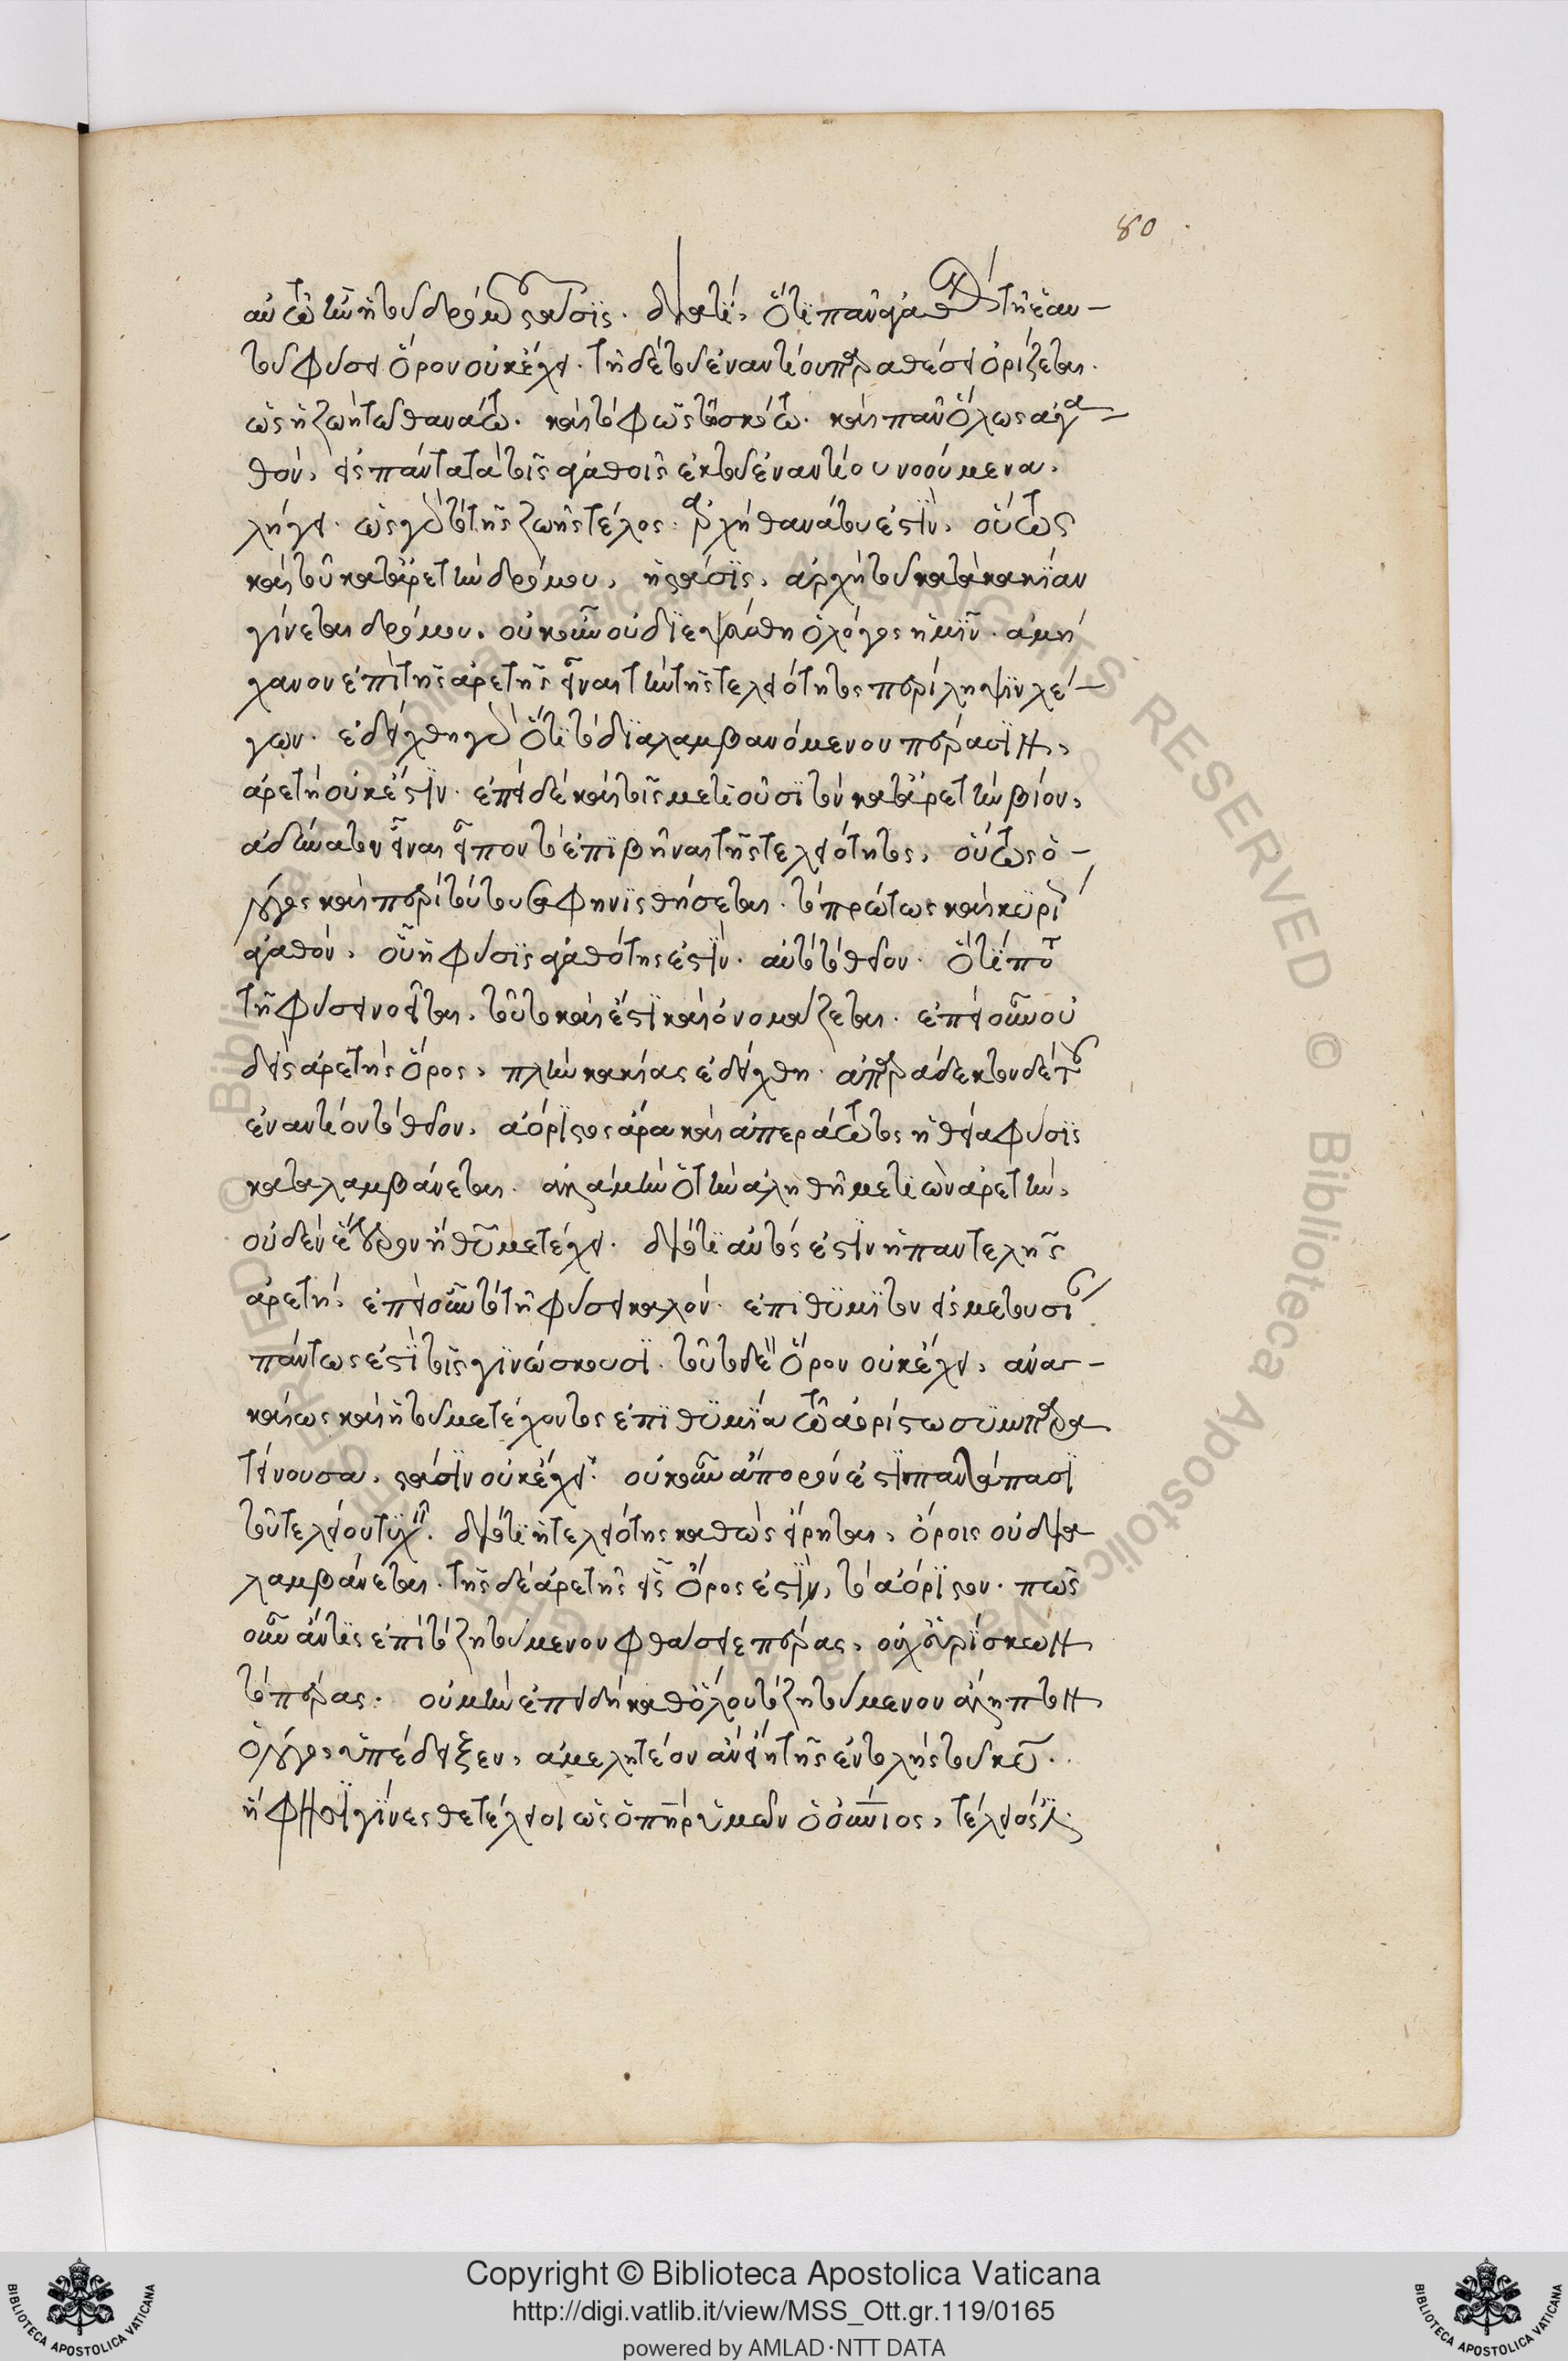 αὐτῶ τὴν ἡ τοῦ δρόμου στάσις. διατί, ὅτι πᾶν ἀγαθὸν τῆ ἑαυ-
τοῦ φύσει ὅρον οὐκ ἔχει. τῆ δὲ τοῦ ἐναντίου παραθέσει ὁρίζεται.
ὡς ἡ ζωὴ τῶ θανάτω. καὶ τὸ φῶς τῶ σκότω. καὶ πᾶν ὅλως ἀγα-
θὸν, εἰς πάντα τὰ τοῖς ἀγαθοῖς ἐκ τοῦ ἐναντίου νοούμενα,
λήγει. ὡς γὰρ τὸ τῆς ζωῆς τέλος. ἀρχὴ θανάτου ἐστὶν, οὕτως
καὶ τοῦ κατ᾽ ἀρετὴν δρόμου, ἡ στάσις, ἀρχὴ τοῦ κατὰ κακίαν
γίνεται δρόμου. οὐκοῦν οὐ διεψεύσθη ὁ λόγος ἡμῖν. ἀμή
χανον ἐπὶ τῆς ἀρετῆς εἶναι τὴν τῆς τελειότητος περίληψιν λέ-
γων. ἐδείχθη γὰρ ὅτι τὸ διαλαμβανόμενον πέρασιν,
ἀρετὴ οὐκ ἔστιν. ἐπεὶ δὲ καὶ τοῖς μετιοῦσι τὸν κατ᾽ ἀρετὴν βίον,
ἀδύνατον εἶναι εἶπον τὸ ἐπιβῆναι τῆς τελειότητος, οὕτως ὁ-
λόγος καὶ περὶ τούτου σαφηνισθήσεται. τὸ πρώτως καὶ κυρίως
ἀγαθὸν, οὗ ἡ φύσις ἀγαθότης ἐστὶν. αὐτὸ τὸ θεῖον. ὅτι ποτὲ
τῆ φύσει νοεῖται, τοῦτο καὶ ἔστι καὶ ὀνομάζεται. ἐπεὶ οὖν οὐ
δεὶς ἀρετῆς ὅρος, πλὴν κακίας ἐδείχθη. ἀπαράδεκτον δὲ τοῦ
ἐναντίου τὸ θεῖον, ἀόριστος ἄρα καὶ ἀπεράτωτος ἡ θεία φύσις
καταλαμβάνεται. ἀλλὰ μὴν ὁ τὴν ἀληθῆ μετιὼν ἀρετὴν,
οὐδὲν ἕτερον ἢ θεοῦ μετέχει. διότι αὐτός ἐστιν ἡ παντελὴς
ἀρετή, ἐπεὶ οὖν τὸ τῆ φύσει καλὸν. ἐπιθυμητὸν εἰς μετουσίαν
πάντως ἐστὶ τοῖς γινώσκουσι. τοῦτο δὲ ὅρον οὐκ ἔχει, ἀναγ-
καίως καὶ ἡ τοῦ μετέχοντος ἐπιθυμία τῶ ἀορίστω συμπαρα
τείνουσα, στάσιν οὐκ ἔχει. οὐκοῦν ἄπορόν ἐστι παντάπασι
τοῦ τελείου τυχεῖν. διότι ἡ τελειότης καθὼς εἴρηται, ὅροις οὐ δια
λαμβάνεται. τῆς δὲ ἀρετῆς εἷς ὅρος ἐστὶν, τὸ ἀόριστον. πῶς
οὖν ἄν τις ἐπὶ τὸ ζητούμενον φθάσειε πέρας, οὐχ εὑρίσκων
τὸ πέρας. οὐ μὴν ἐπειδὴ καθόλου τὸ ζητούμενον ἄληπτον
ὁ λόγος ὑπέδειξεν, ἀμελητέον ἂν εἴη τῆς ἐντολῆς τοῦ κυ.
ἥ φησι γίνεσθε τέλειοι ὡς ὁ πηρ ὑμῶν ὁ οὐνιος, τέλειός ἐστι.
80